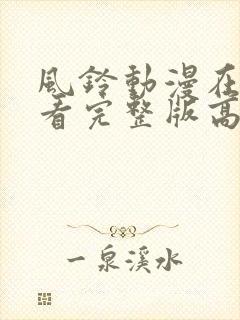 風鈴動漫在
看完整版高
一泉溪水